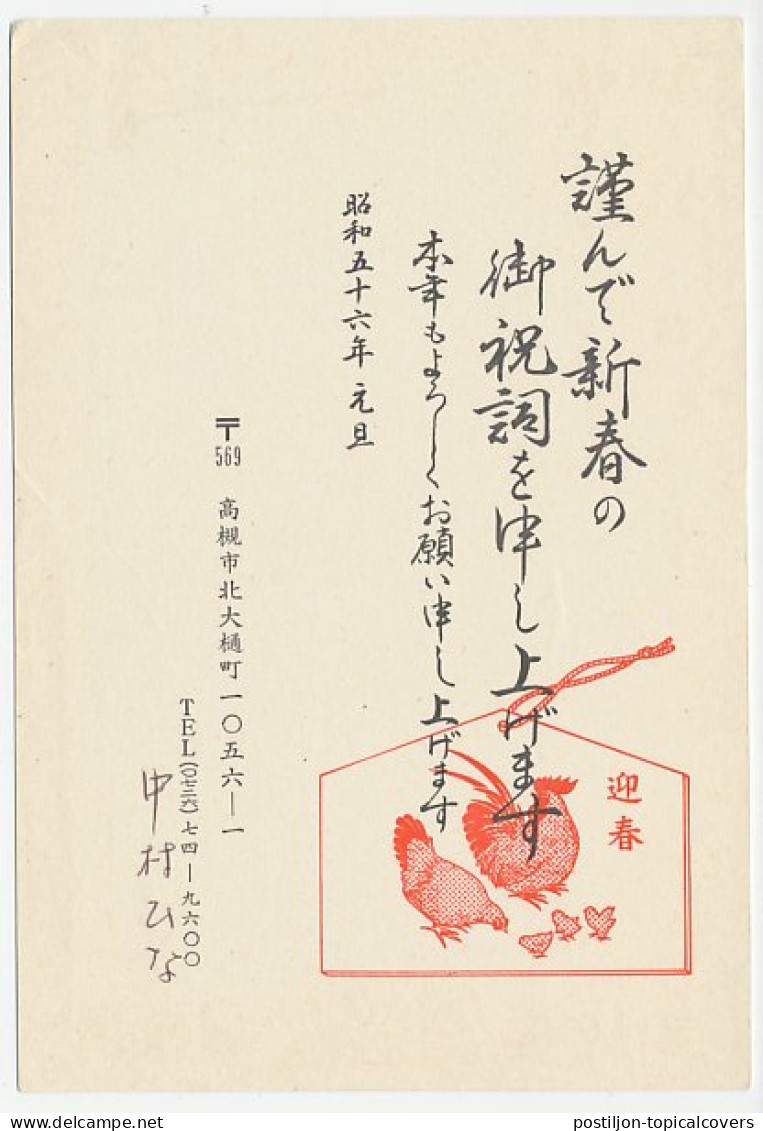 謹んで新春の
御祝詞を申し上げます
本年もよろしくお願い申し上げます
昭和五十六年 元旦
〒569 高槻市北大樋町一〇五六ー一
TEL(〇七二六)七四ー九六〇〇
中村ひな
迎春
postiljon-topicalcovers